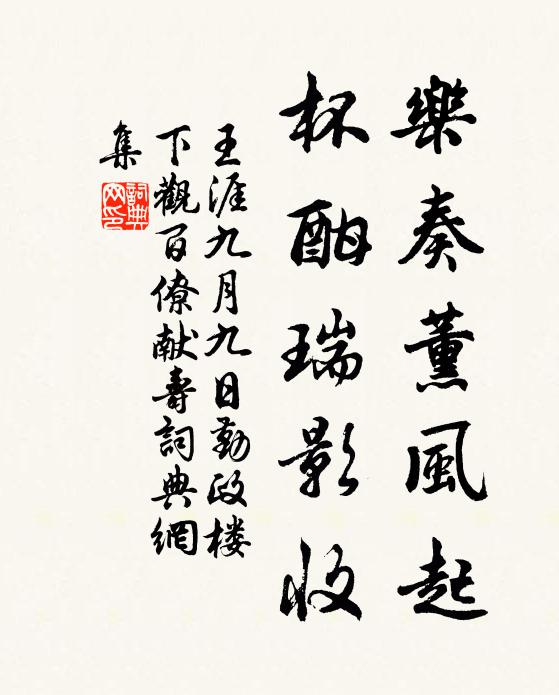 樂奏薰風起
杯酣瑞影收
王涯九月九日勤政楼
下觀百僚献壽詞典網
集
詞典
网印